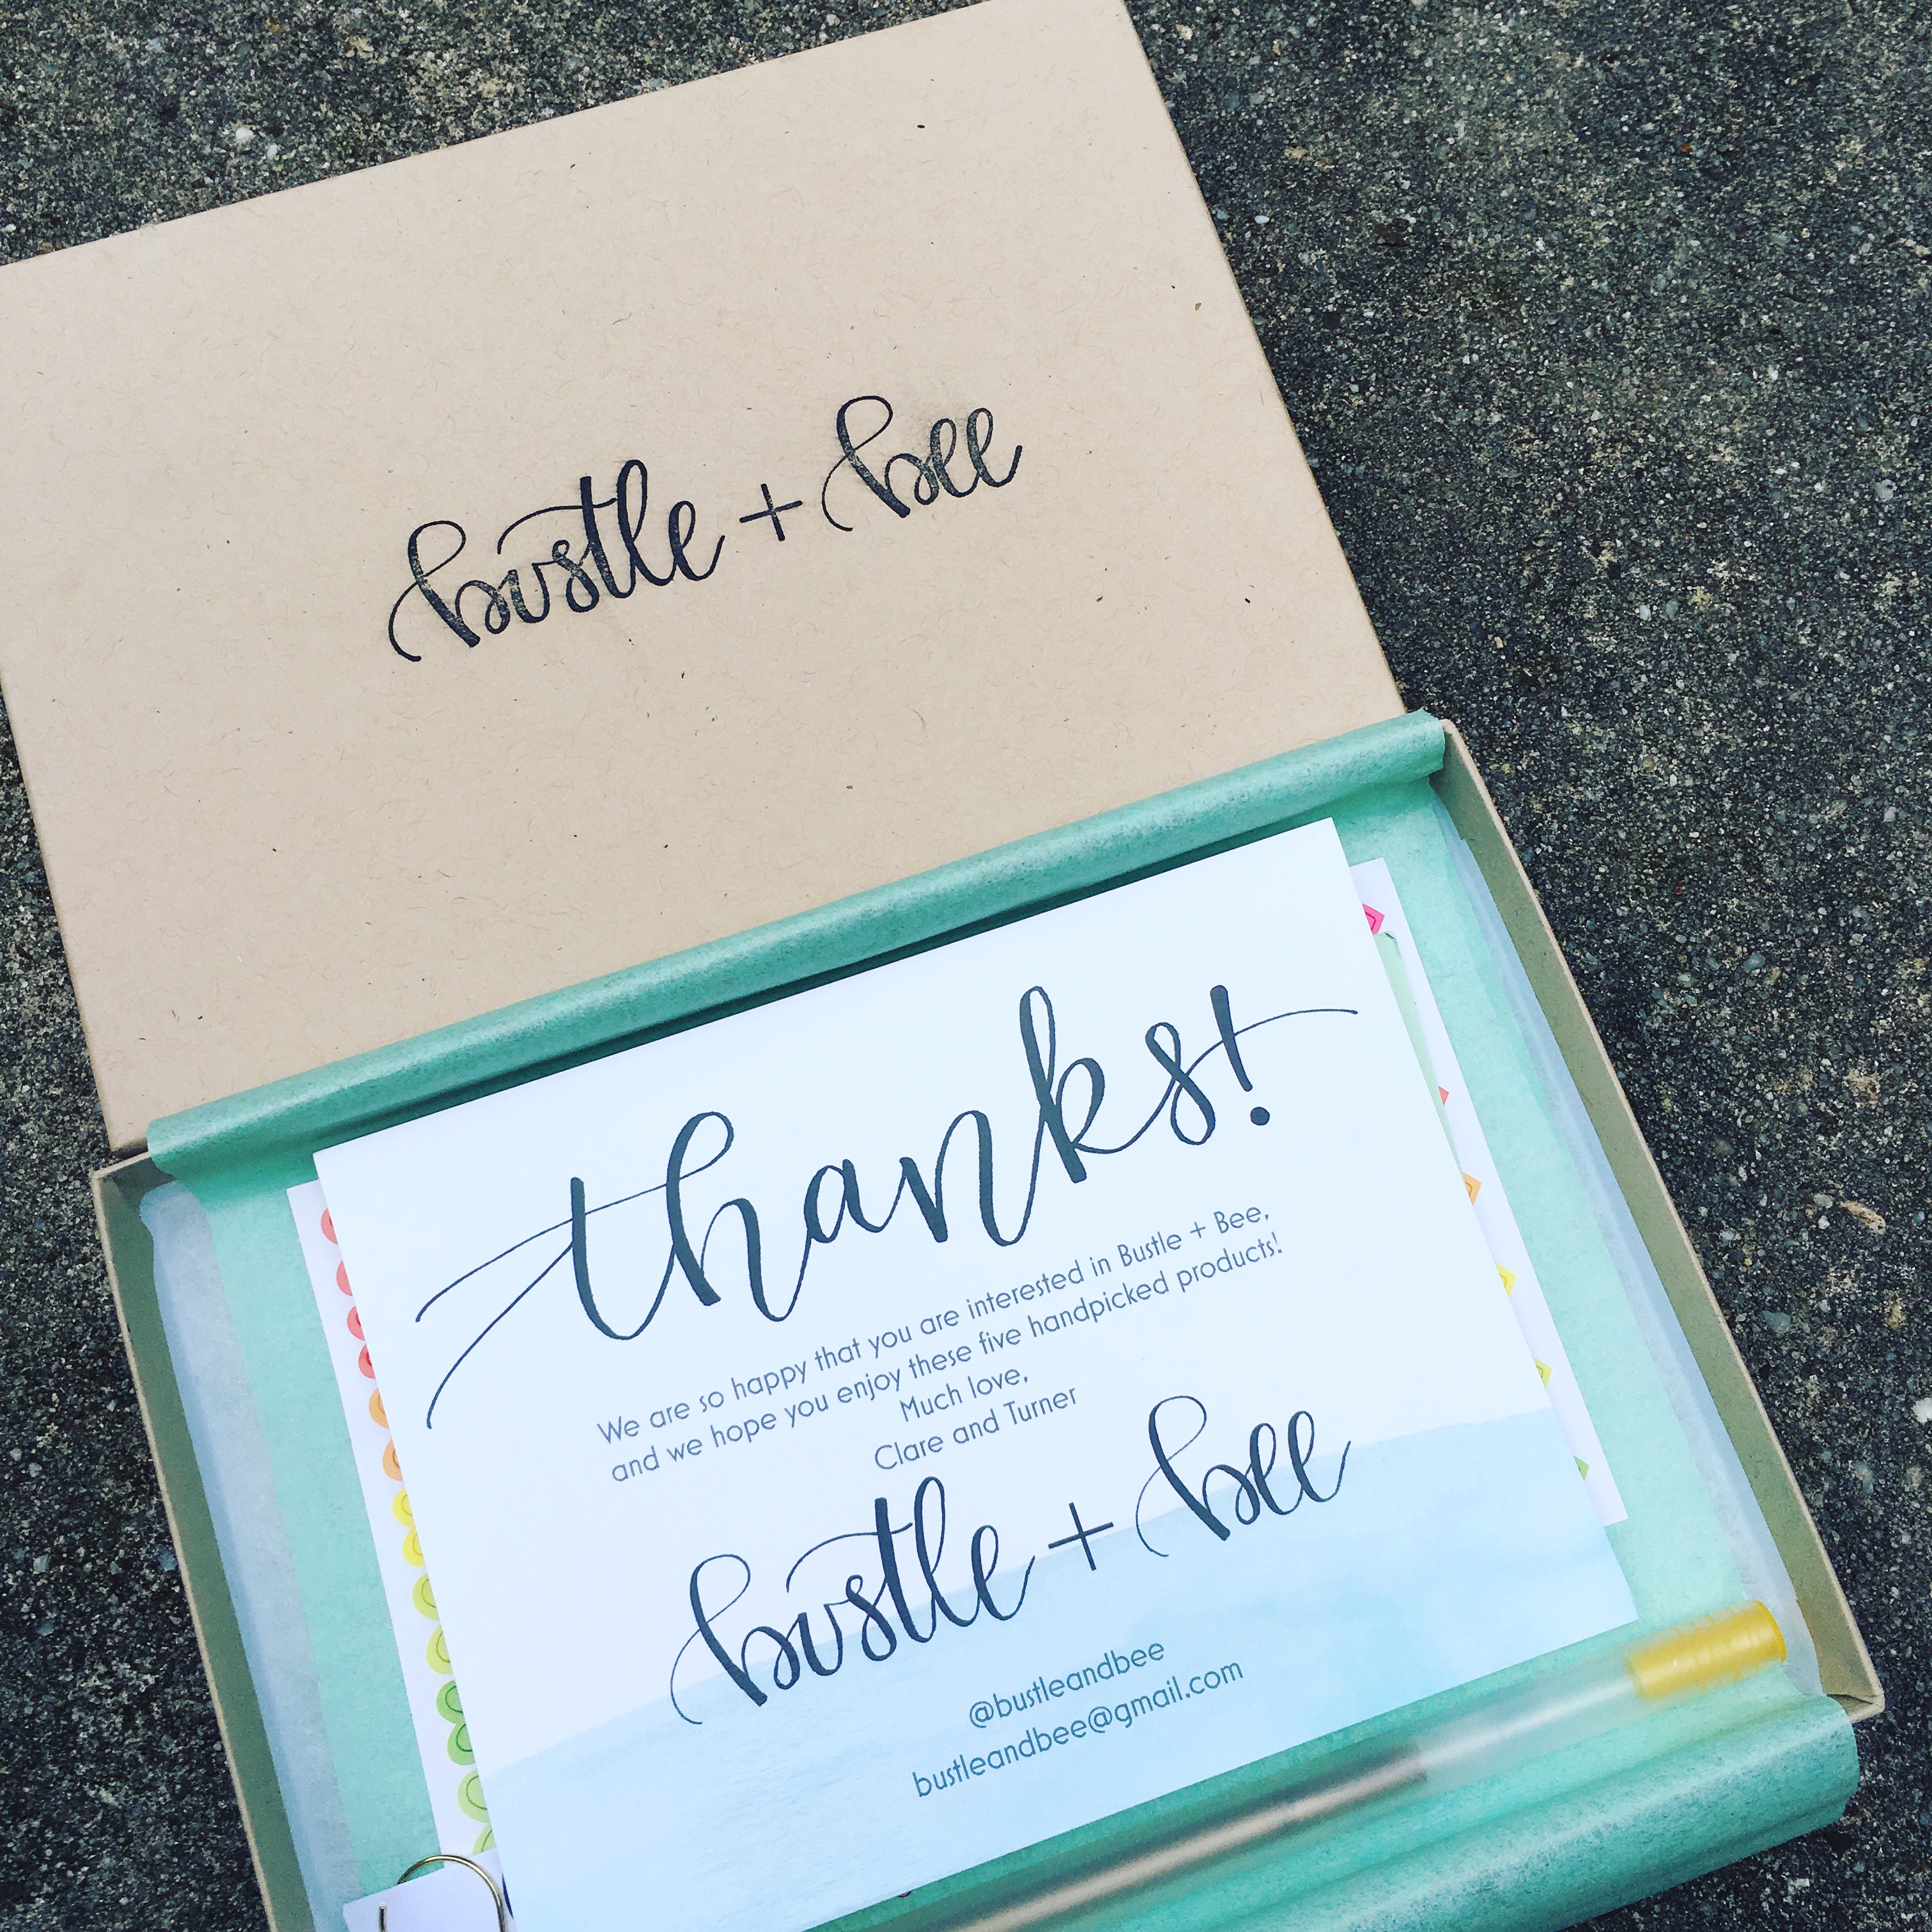 bustle + bee
thanks!
We are so happy that you are interested in Bustle + Bee,
and we hope you enjoy these five handpicked products!
Much love,
Clare and Turner
bustle + bee
@bustleandbee
bustleandbee@gmail.com